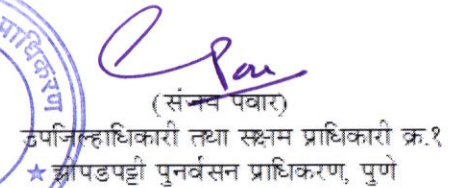 प्राधिकरण
(संजय पवार)
उपजिल्हाधिकारी तथा सक्षम प्राधिकारी क्र.१
★ झोपडपट्टी पुनर्वसन प्राधिकरण, पुणे